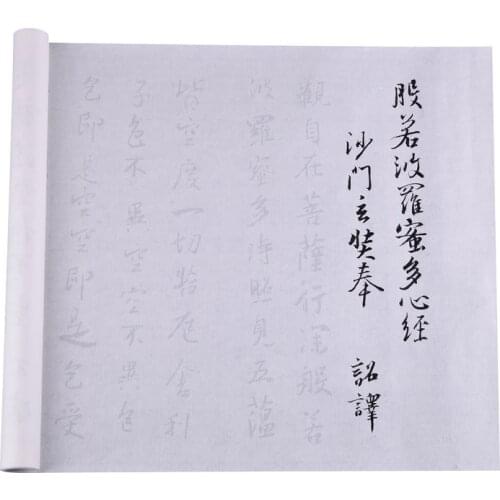 般若波羅蜜多心經
沙門玄奘奉 詔譯
觀自在菩薩行深般若
波羅蜜多時照見五蘊
皆空度一切苦厄舍利
子色不異空空不異色
色即是空空即是色受